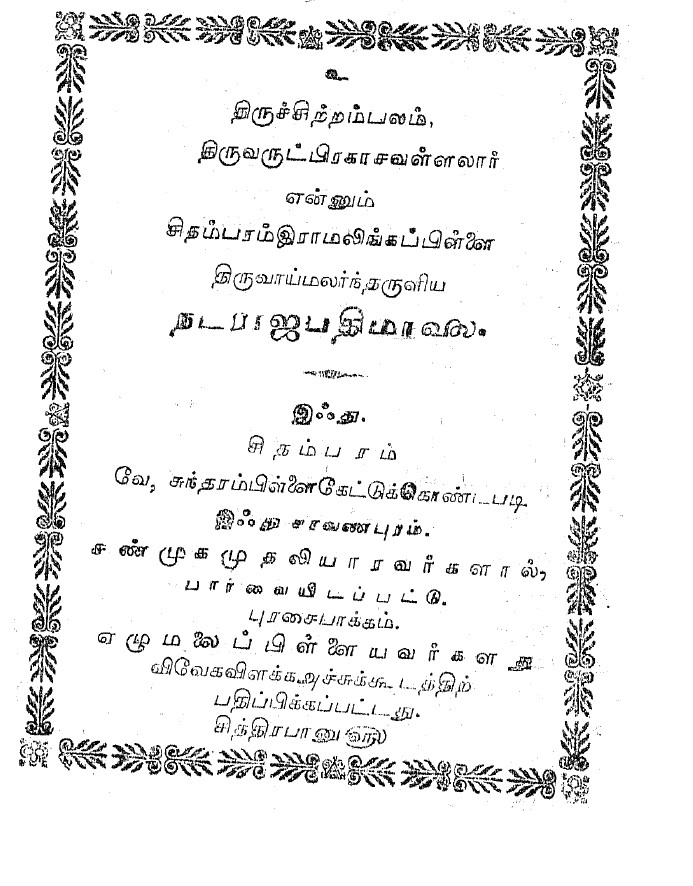 உ
திருச்சிற்றம்பலம்,
திருவருட்பிரகாசவள்ளலார்
என்னும்
சிதம்பரம்இராமலிங்கப்பிள்ளை
திருவாய்மலர்ந்தருளிய
நடராஜபதிமாலை.
இஃது.
சிதம்பரம்
வே, சுந்தரம்பிள்ளைகேட்டுக்கொண்டபடி
இஃது சரவணபுரம்.
சண்முகமுதலியாரவர்களால்,
பார்வையிடப்பட்டு.
புரசைபாக்கம்.
ஏழுமலைப்பிள்ளையவர்களது
விவேகவிளக்கஅச்சுக்கூடத்திற்
பதிப்பிக்கப்பட்டது.
சித்திரபானு௵